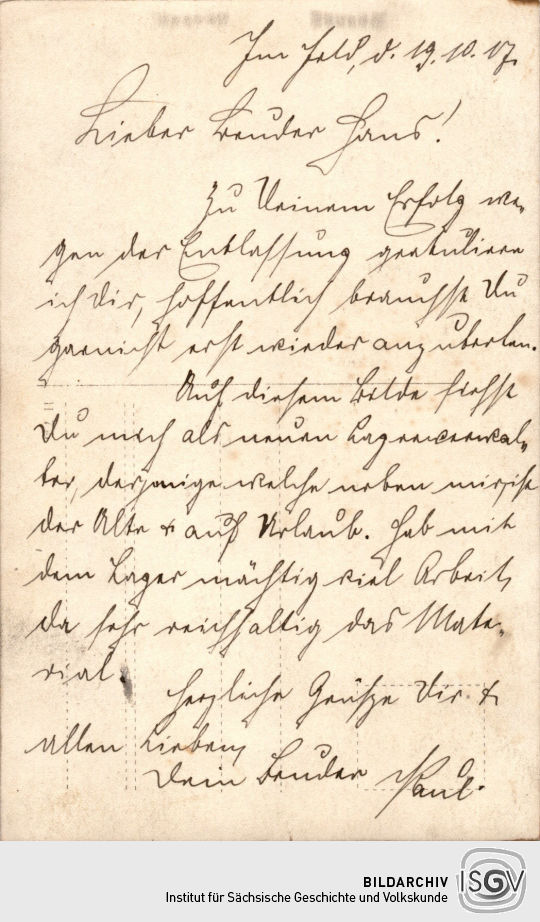 Im Feld, d. 19.10.17.
Lieber Bruder Hans!
Zu Deinem Erfolg we-
gen der Entlassung gratuliere
ich Dir, hoffentlich brauchst Du
garnicht erst wieder anzutreten.
Auf diesem Bilde siehst
Du mich als neuen Lagerverwal-
ter, derjenige welche neben mir, ist
der Alte & auf Urlaub. Hab mit
dem Lager mächtig viel Arbeit,
da sehr reichhaltig das Mate-
rial.
Herzliche Grüße Dir &
allen Lieben,
Dein Bruder Paul.
BILDARCHIV ISGV
Institut für Sächsische Geschichte und Volkskunde